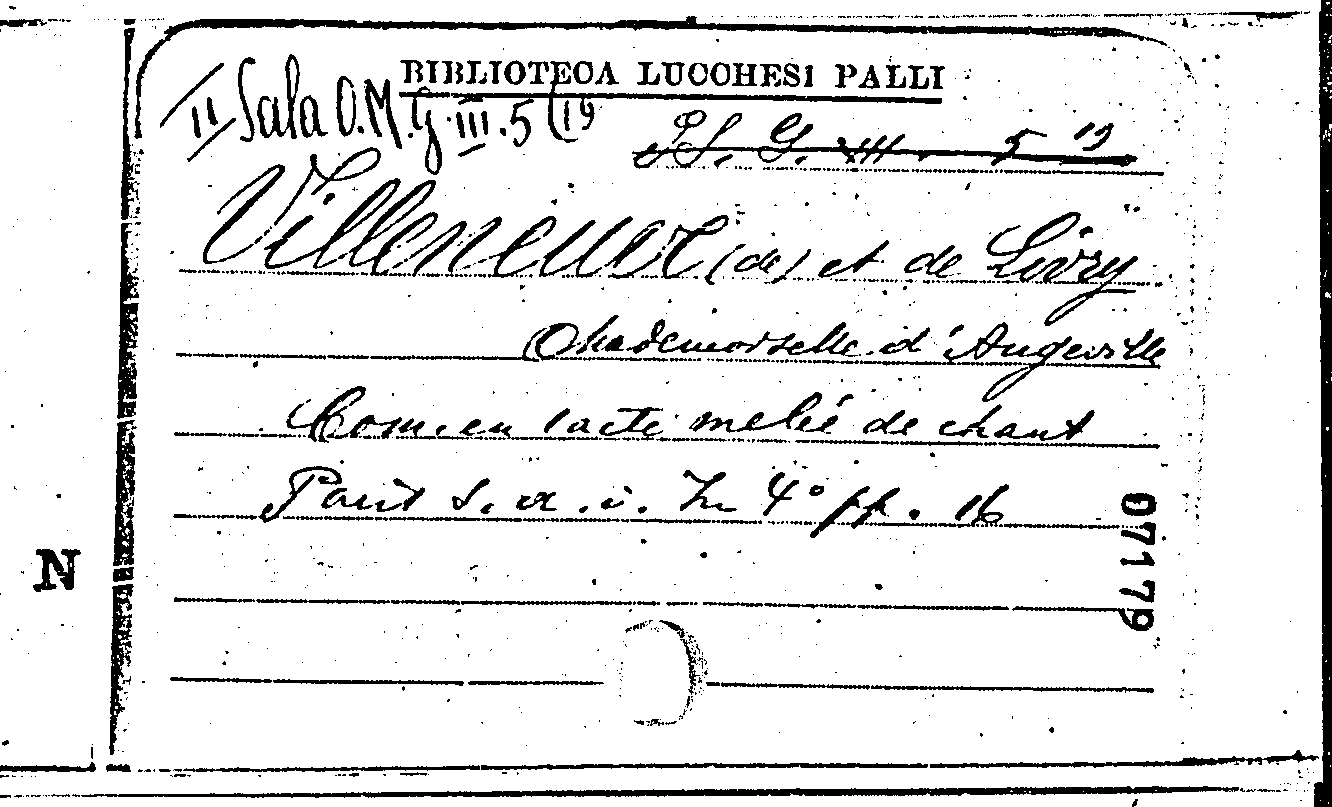 BIBLIOTECA LUCCHESI PALLI
II Sala O.M. G. III. 5 (19
G. III. 5 19
Villeneuve (de) et de Livry
Mademoiselle d'Angeville
Com. en 1 acte melée de chant
Paris s. a. i. In 4° pp. 16
07179
N